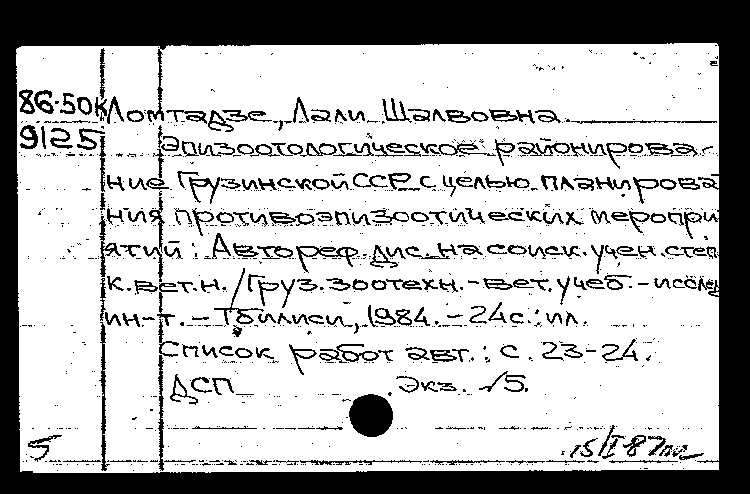 86-50к Ломтадзе, Лали Шалвовна
9125 Эпизоотологическое районирова-
ние Грузинской ССР с целью планирова
ния противоэпизоотических меропри
ятий: Автореф. дис. на соиск. учен. степ
к. вет. н. / Груз. зоотехн.-вет. учеб.-исслед
ин-т. - Тбилиси, 1984. - 24 с.: ил.
Список работ авт.: с. 23-24.
ДСП Экз. √5.
5 15/I-87